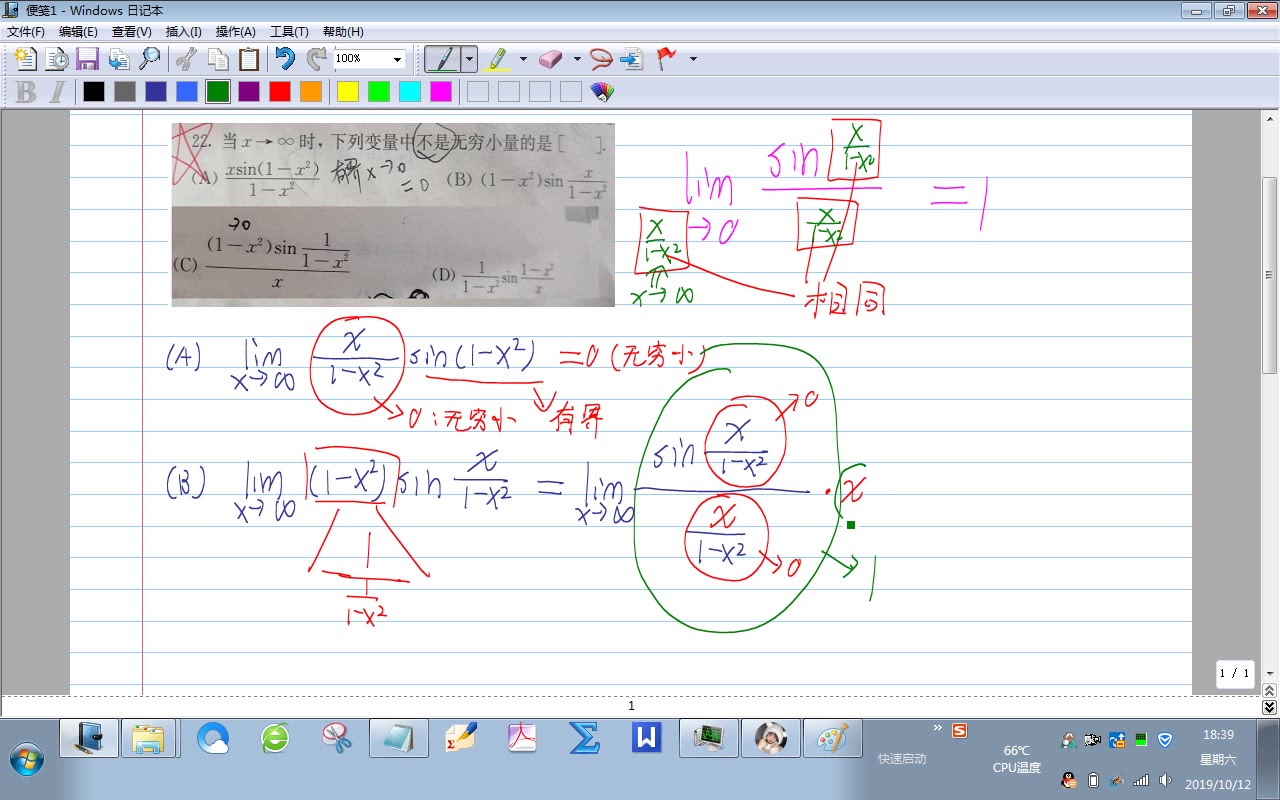 便笺1 - Windows 日记本
文件(F) 编辑(E) 查看(V) 插入(I) 操作(A) 工具(T) 帮助(H)
100%
B I
22. 当 x → ∞ 时，下列变量中不是无穷小量的是 [ ].
(A) xsin(1−x²)/(1−x²) 有界 x→0 =0 (B) (1−x²)sin x/(1−x²)
→0
(C) (1−x²)sin 1/(1−x²) / x (D) 1/(1−x²) sin (1−x²)/x
lim x/(1−x²) →0 sin x/(1−x²) / x/(1−x²) = 1
x→∞
相同
(A) lim x→∞ x/(1−x²) sin(1−x²) =0 (无穷小)
→0：无穷小 有界
(B) lim x→∞ (1−x²) sin x/(1−x²) = lim x→∞ sin x/(1−x²) / x/(1−x²) · x
→0
→0
→1
1
1−x²
1 / 1
1
66℃
CPU温度
快速启动
18:39
星期六
2019/10/12